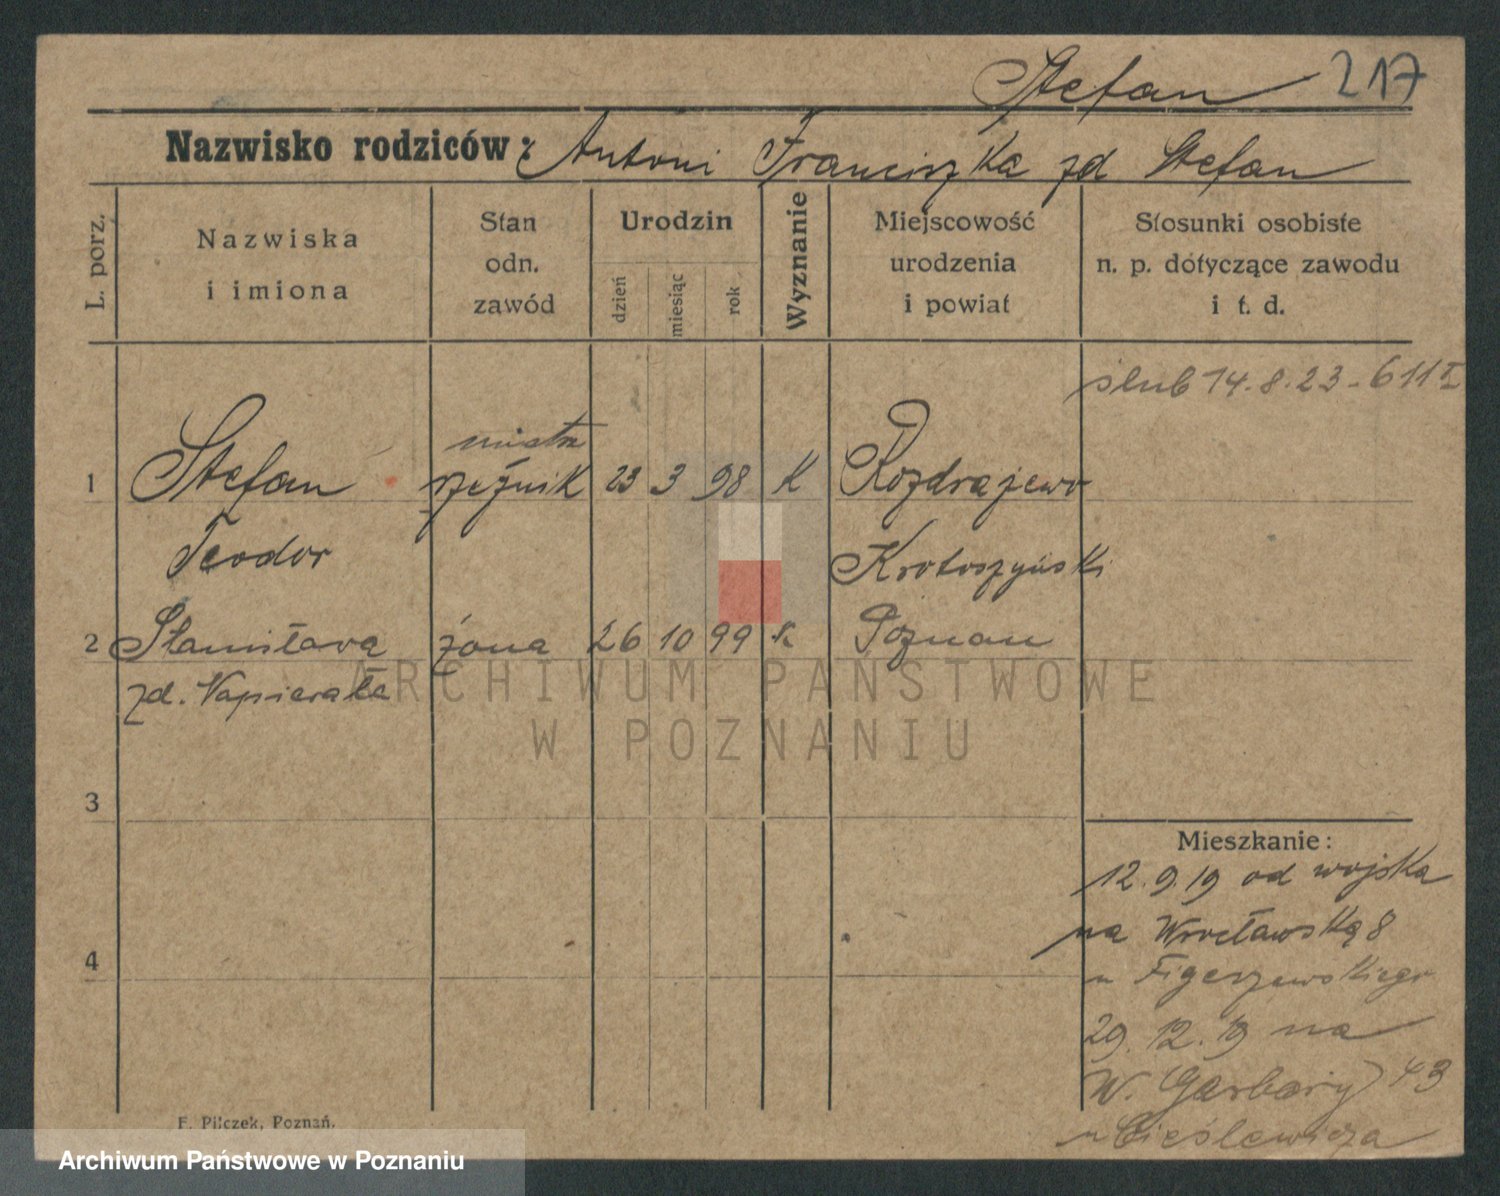 Stefan 217
Nazwisko rodziców: Antoni Franciszka zd Stefan
L. porz.
Nazwiska
i imiona
Stan
odn.
zawód
Urodzin
dzień
miesiąc
rok
Wyznanie
Miejscowość
urodzenia
i powiat
Stosunki osobiste
n. p. dotyczące zawodu
i t. d.
slub 14.8.23 - 611 I
mistrz
1 Stefan rzeźnik 23 3 98 K Rozdrajewo
Teodor Krotoszyński
2 Stanisława żona 26 10 99 K Poznan
zd. Napierała
3
4
Mieszkanie:
12.9.19 od wojska
na Wrocławską 8
u Figaszewskiego
29.12.19 na
W. Garbary 43
u Cieślewicza
F. Pilczek, Poznań.
ARCHIWUM PAŃSTWOWE
W POZNANIU
Archiwum Państwowe w Poznaniu